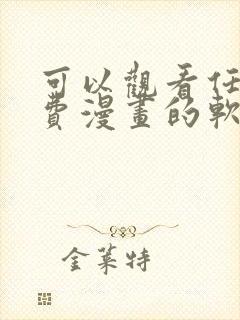 可以觀看任
費漫畫的軟
金萊特